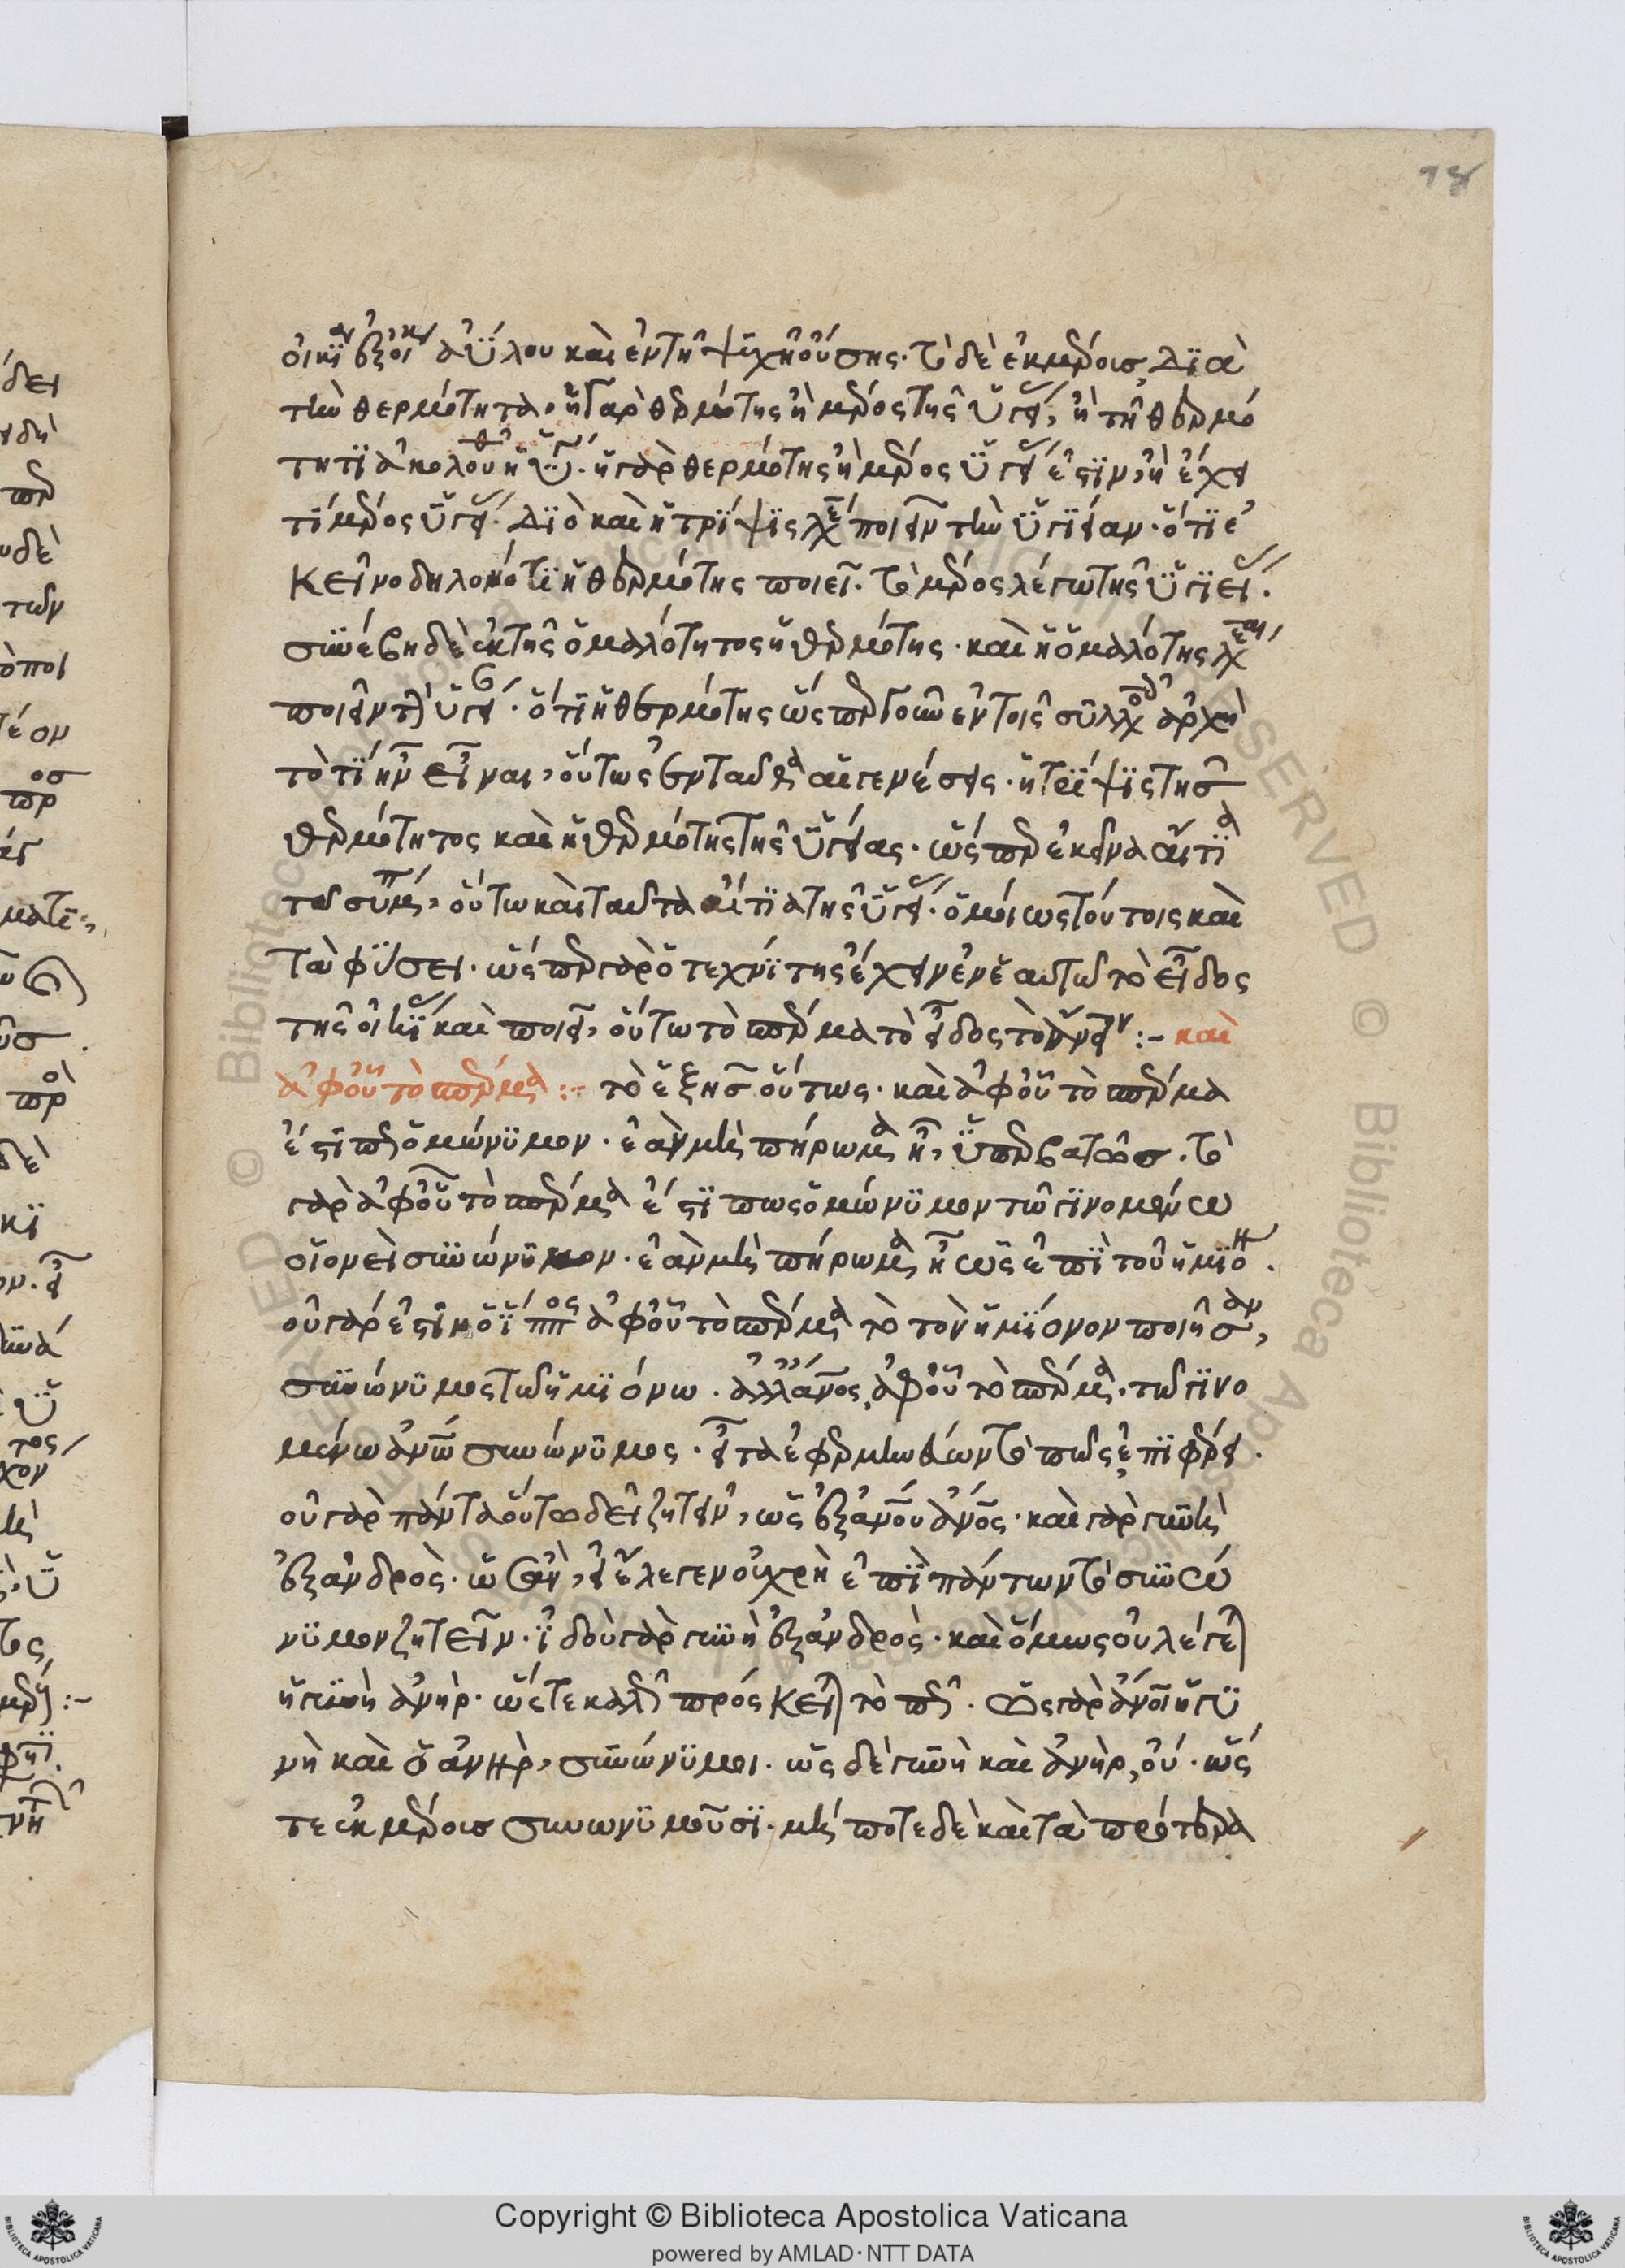 οἰκίαν ἐξ οἰκίας ἀΰλου καὶ ἐν τῇ ψυχῇ οὔσης· τὸ δὲ ἐκ μέρους, διὰ
τὴν θερμότητα· ἢ γὰρ θερμότης ἢ μέρος τῆς ὑγείας, ἢ τῇ θερμό
τητι ἀκολουθεῖ ἡ ὑγεία· ἡ γὰρ θερμότης ἢ μέρος ὑγείας ἐστιν, ἢ ἔχει
τι μέρος ὑγείας· διὸ καὶ ἡ τρίψις λέγεται ποιεῖν τὴν ὑγίειαν· ὅτι ἐ
κεῖνο δηλονότι ἡ θερμότης ποιεῖ· τὸ μέρος λέγω τῆς ὑγιείας·
συνέβη δὲ ἐκ τῆς ὁμαλότητος ἡ θερμότης· καὶ ἡ ὁμαλότης λέγεται
ποιεῖν τὴν ὑγείαν· ὅτι ἡ θερμότης ὥσπερ γοῦν ἐν τοῖς συλλογισμοῖς ἀρχὴ
τὸ τί ἦν εἶναι, οὕτως ἐνταῦθα αἱ γενέσεις· ἡ τρίψις τῆς
θερμότητος καὶ ἡ θερμότης τῆς ὑγείας· ὥσπερ ἐκεῖνα αἴτια
τοῦ συμπεράσματος, οὕτω καὶ ταῦτα αἴτια τῆς ὑγείας· ὁμοίως τούτοις καὶ
τὰ φύσει· ὥσπερ γὰρ ὁ τεχνίτης ἔχει ἐν ἑαυτῷ τὸ εἶδος
τῆς οἰκίας καὶ ποιεῖ, οὕτω τὸ σπέρμα τὸ εἶδος :- καὶ
ἀφ' οὗ τὸ σπέρμα :- τὸ ἑξῆς οὕτως· καὶ ἀφ' οὗ τὸ σπέρμα
ἐστί πως ὁμώνυμον· ἐὰν μὴ πήρωμα ᾖ, ὑπερβατῶς· τὸ
γὰρ ἀφ' οὗ τὸ σπέρμα ἐστί πως ὁμώνυμον τῷ γινομένῳ
οἱονεὶ συνώνυμον· ἐὰν μὴ πήρωμα ᾖ ὡς ἐπὶ τοῦ ἡμιόνου·
οὐ γάρ ἐστιν ὁ ἵππος ἀφ' οὗ τὸ σπέρμα τὸ τὸν ἡμίονον ποιῆσαν,
συνώνυμος τῷ ἡμιόνῳ· ἀλλ' ἄνος, ἀφ' οὗ τὸ σπέρμα· τῷ γινο
μένῳ ἀνῳ συνώνυμος· εἶτα ἐφερμηνεύων τό πως, ἐπιφέρει·
οὐ γὰρ πάντα οὕτω δεῖ ζητεῖν, ὡς ἐξ ἀνου ἄνος· καὶ γὰρ γυνὴ
ἐξ ἀνδρός· ὡσανεὶ ἔλεγεν οὐ χρὴ ἐπὶ πάντων τὸ συνώ
νυμον ζητεῖν· ἰδοὺ γὰρ γυνὴ ἐξ ἀνδρός· καὶ ὅμως οὐ λέγεται
ἡ γυνὴ ἀνήρ· ὥστε καλῶς πρόσκειται τὸ πως· ὡς γὰρ ἄνοι ἡ γυ
νὴ καὶ ὁ ἀνὴρ, συνώνυμοι· ὡς δὲ γυνὴ καὶ ἀνὴρ, οὔ· ὥς
τε ἐκ μέρους συνωνυμοῦσι· μή ποτε δὲ καὶ τὰ πρότερα